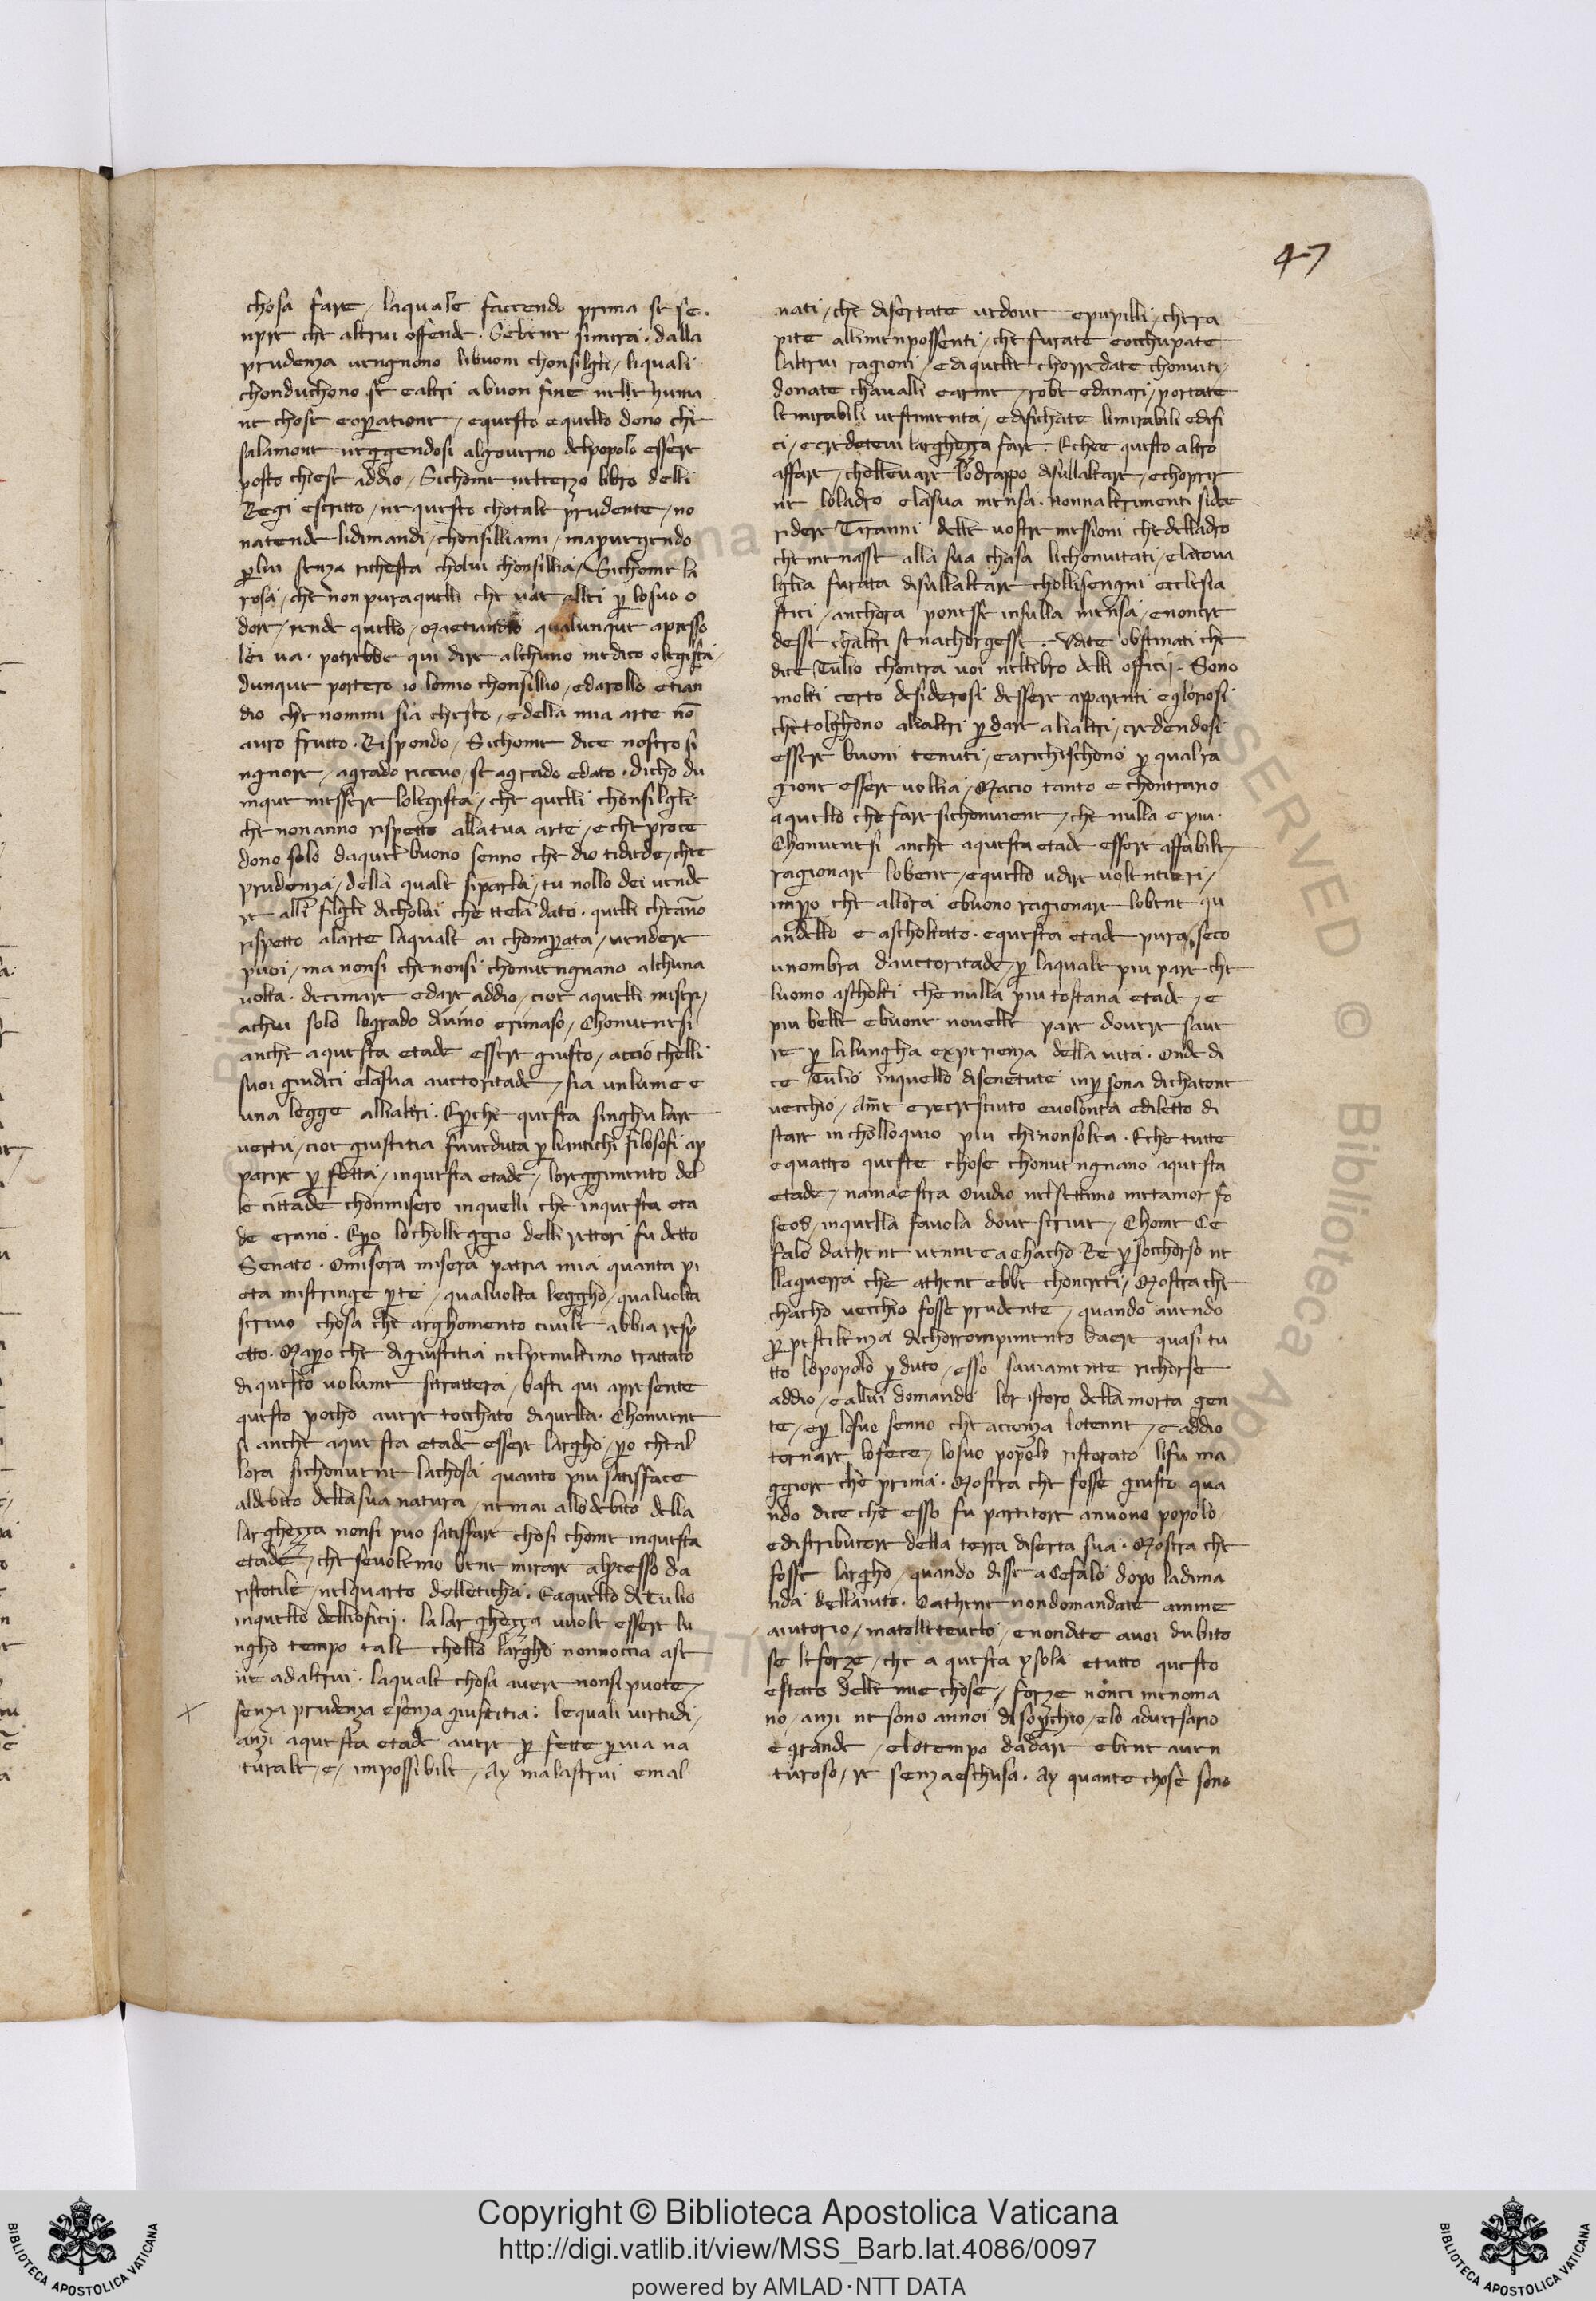 47
chosa fare / laquale faccendo prima se se.
npre che altrui offende. Sebene simira. dalla
prudenza vengnono libuoni chonsilgli / liquali
chonduchono se e altri a buon fine nelle huma
ne chose e op̄atione / e questo e quello dono che
salamone veggendosi algoverno delpopolo essere
posto chiese addio / Sichome nelterzo libro delli
Regi escritto / ne questo chotale prudente / no
natende lidimandi / chonsilliami / maprovegendo
p̄lui senza richesta cholui chonsillia / Sichome la
rosa / che non puraquelli che vae allei p̄ losuo o
dore / rende quello / Maetiandio qualunque apresso
lei va. potrebbe qui dire alchuno medico olegista /
dunque portero io lomio chonsillio / edarollo etian
dio che nommi sia chesto / e della mia arte nō
auro frutto. Rispondo / Sichome dice nostro si
ngnore / agrado ricevo / se agrado edato. dicho du
nque messere lolegista / che quelli chonsilgli
che nonanno rispetto alla tua arte / e che proce
dono solo daquel buono senno che dio tidiede / che e
prudenza / della quale siparla / tu nollo dei vende
re alli filgli dicholui che ttela dato. quelli cheāno
rispetto alarte laquale ai chomp̄ata / vendere
puoi / ma nonsi chenonsi chonvengnano alchuna
volta. decimare e dare addio / cioe aquelli miseri /
achui solo logrado divino erimaso / Chonvenesi
anche aquesta etade essere giusto / accio chelli
suoi giudici elasua auctoritade / sia unlume e
una legge alliatri. Ep̄che questa singhulare
vertu / cioe giustitia fuveduta p̄ liantichi filosofi ap
parire p̄fetta / inquesta etade / loreggimento del
le cittade chonmisero inquelli che inquesta eta
de erano. Ep̄o lochollegqio delli rettori fu detto
Senato. Omisera misera patria mia quanta pi
eta mistringe p̄ te / qualvolta leggho / qualvolta
scrivo chosa che arghomento civile abbia resp̄
etto. Map̄o che digiustitia nelpenultimo trattato
di questo volume sitrattera / basti qui apresente
questo pocho avere tocchato diquella. Chonvene
si anche aquesta etade essere largho / p̄o chetal
lora sichonvene lachosa quanto piu satisface
aldebito dellasua natura / nemai allo debito della
larghezza nonsi puo satisfare chosi chome inquesta
etade / che sevolemo bene mirare alp̄cesso da
ristotile / nelquarto delleticha. Eaquello di Tulio
inquello delliofficij. la larghezza vuole essere lu
ngho tempo tale chello largho nonnoccia ase
ne adaltrui. laquale chosa avere nonsi puote /
senza prudenza esenza giustitia. lequali virtudi /
anzi aquesta etade avere p̄fette p̄via na
turale / e / impossibile / Ay malastrui emal
nati / che disertate vedove epupilli / chera
pite allimenpossenti / che furate eocchupate
laltrui ragioni / ediquelle chorredate chonviti /
donate chavalli earme / robe edanari / portate
lemirabili vestimenta / edifichate limirabili edifi
ci / ecredetevi larghezza fare. Eche e questo altro
affare / chellevare lodrappo disullaltare / echoprir
ne loladro elasua mensa. Nonnaltrimenti side
ridere Tiranni delle vostre messioni chedelladro
che menasse alla sua chasa lichonvitati / elatova
lglia furata disullaltare chollisengni ecclesia
stici / anchora ponesse insulla mensa / enoncre
desse chaltri senachorgesse. Udite obstinati che
dice Tulio chontra voi nellibro delli officij. Sono
molti certo desiderosi dessere apparenti egloriosi
che tolghono aliatri p̄ dare aliatri / credendosi
essere buoni tenuti / earichischono p̄ qualra
gione essere vollia / Macio tanto e chontrario
aquello che fare sichonviene / che nulla e piu.
Chonvenesi anche aquesta etade essere affabile /
ragionare lobene / equello udire volentieri /
imp̄o che allora ebuono ragionare lobene qu
andello e ascholtato. equesta etade pura seco
unombra dauctoritade / p̄ laquale piu pare che
luomo ascholti che nulla piu tostana etade / e
piu belle ebuone novelle pare dovere save
re p̄ lalungha experienza della vita. Onde di
ce Tulio inquello disenetute inp̄sona dichatone
vecchio / Ame ericresciuto evolonta ediletto di
stare incholloquio piu chinonsolea. Eche tutte
equattro queste chose chonvengnano aquesta
etade / namaestra Ovidio nelsettimo metamorfo
seos / inquella favola dove scrive / Chome Ce
falo dathene venne a Chacho Re p̄ soccorso ne
llaguerra che athene ebbe choncreti / Mostra che
chacho vecchio fosse prudente / quando avendo
p̄ pestilenza dichorrompimento daere quasi tu
tto lopopolo p̄duto / esso saviamente richorse
addio / e allui domando loristoro della morta gen
te / ep̄ losuo senno che acienza lotenne / e addio
tornare lofece / losuo popolo ristorato lifu ma
ggiore che prima. Mostra che fosse giusto qua
ndo dice che esso fu partitore anuovo popolo /
edistributore della terra diserta sua. Mostra che
fosse largho / quando disse a Cefalo dopo ladima
nda dellaiuto. O athene nondomandate amme
aiutorio / matolletevelo / enondite avoi dubito
se leforze / che a questa ysola etutto questo
estato delle mie chose / forze nonci menoma
no / anzi ne sono annoi disop̄chio / elo adversario
egrande / elotempo dadare ebene aven
turoso / re senzaeschusa. Ay quante chose sono
Copyright © Biblioteca Apostolica Vaticana
http://digi.vatlib.it/view/MSS_Barb.lat.4086/0097
powered by AMLAD·NTT DATA